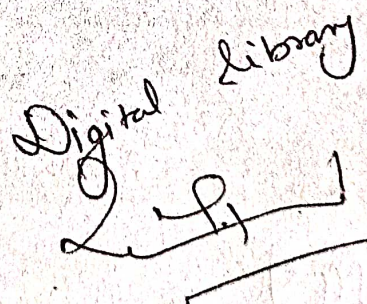 Digital library